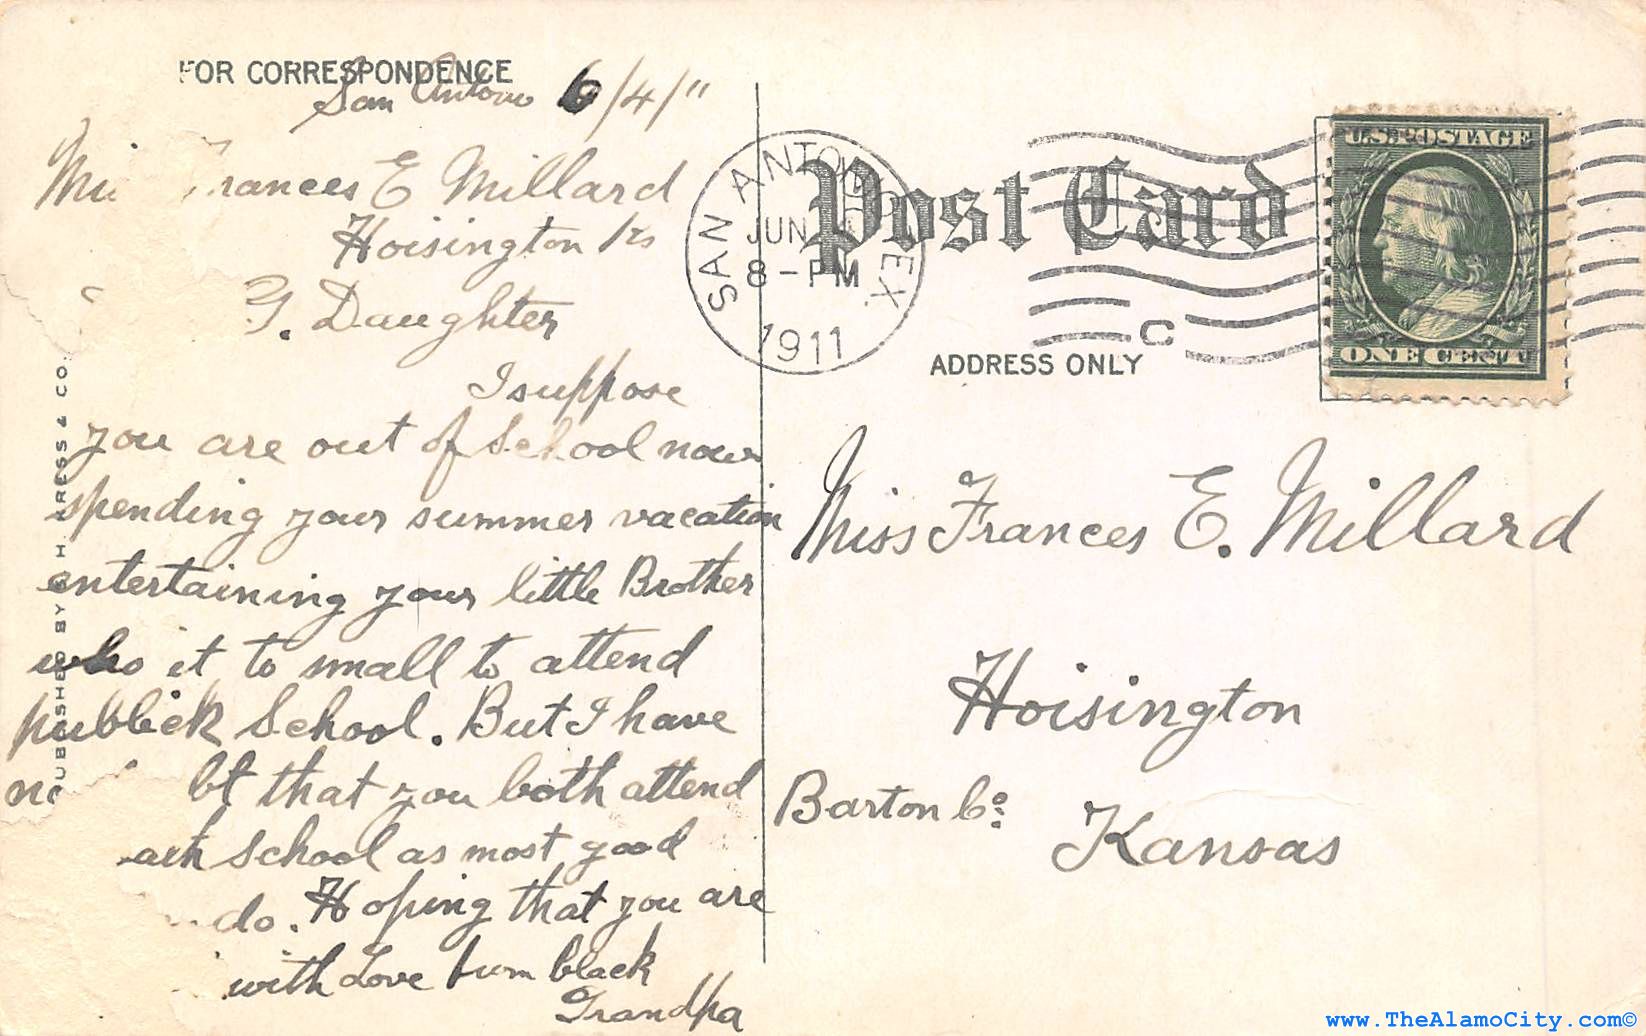 FOR CORRESPONDENCE
San Antonio 6/4/11
Frances E Millard
Hoisington Ks
G. Daughter
I suppose
you are out of School now
spending your summer vacation
entertaining your little Brother
who it to small to attend
publick School. But I have
that you both attend
School as most good
do. Hoping that you are
with Love from black
Grandpa
PUBLISHED BY H. KRESS & CO.
SAN ANTONIO, TEX.
JUN 4
8-PM
1911
Post Card
C
U.S. POSTAGE
ONE CENT
ADDRESS ONLY
Miss Frances E. Millard
Hoisington
Barton Co.
Kansas
www.TheAlamoCity.com©